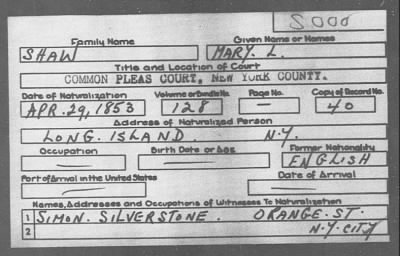 S000
Family Name Given Name or Names
SHAW MARY. L.
Title and Location of Court
COMMON PLEAS COURT, NEW YORK COUNTY.
Date of Naturalization Volume or Bundle No. Page No. Copy of Record No.
APR. 29, 1853 128 — 40
Address of Naturalized Person
LONG. ISLAND. N.Y.
Occupation Birth Date or Age Former Nationality
— — ENGLISH
Port of Arrival in the United States Date of Arrival
— —
Names, Addresses and Occupations of Witnesses To Naturalization
1 SIMON. SILVERSTONE. ORANGE. ST.
2 N.Y. CITY